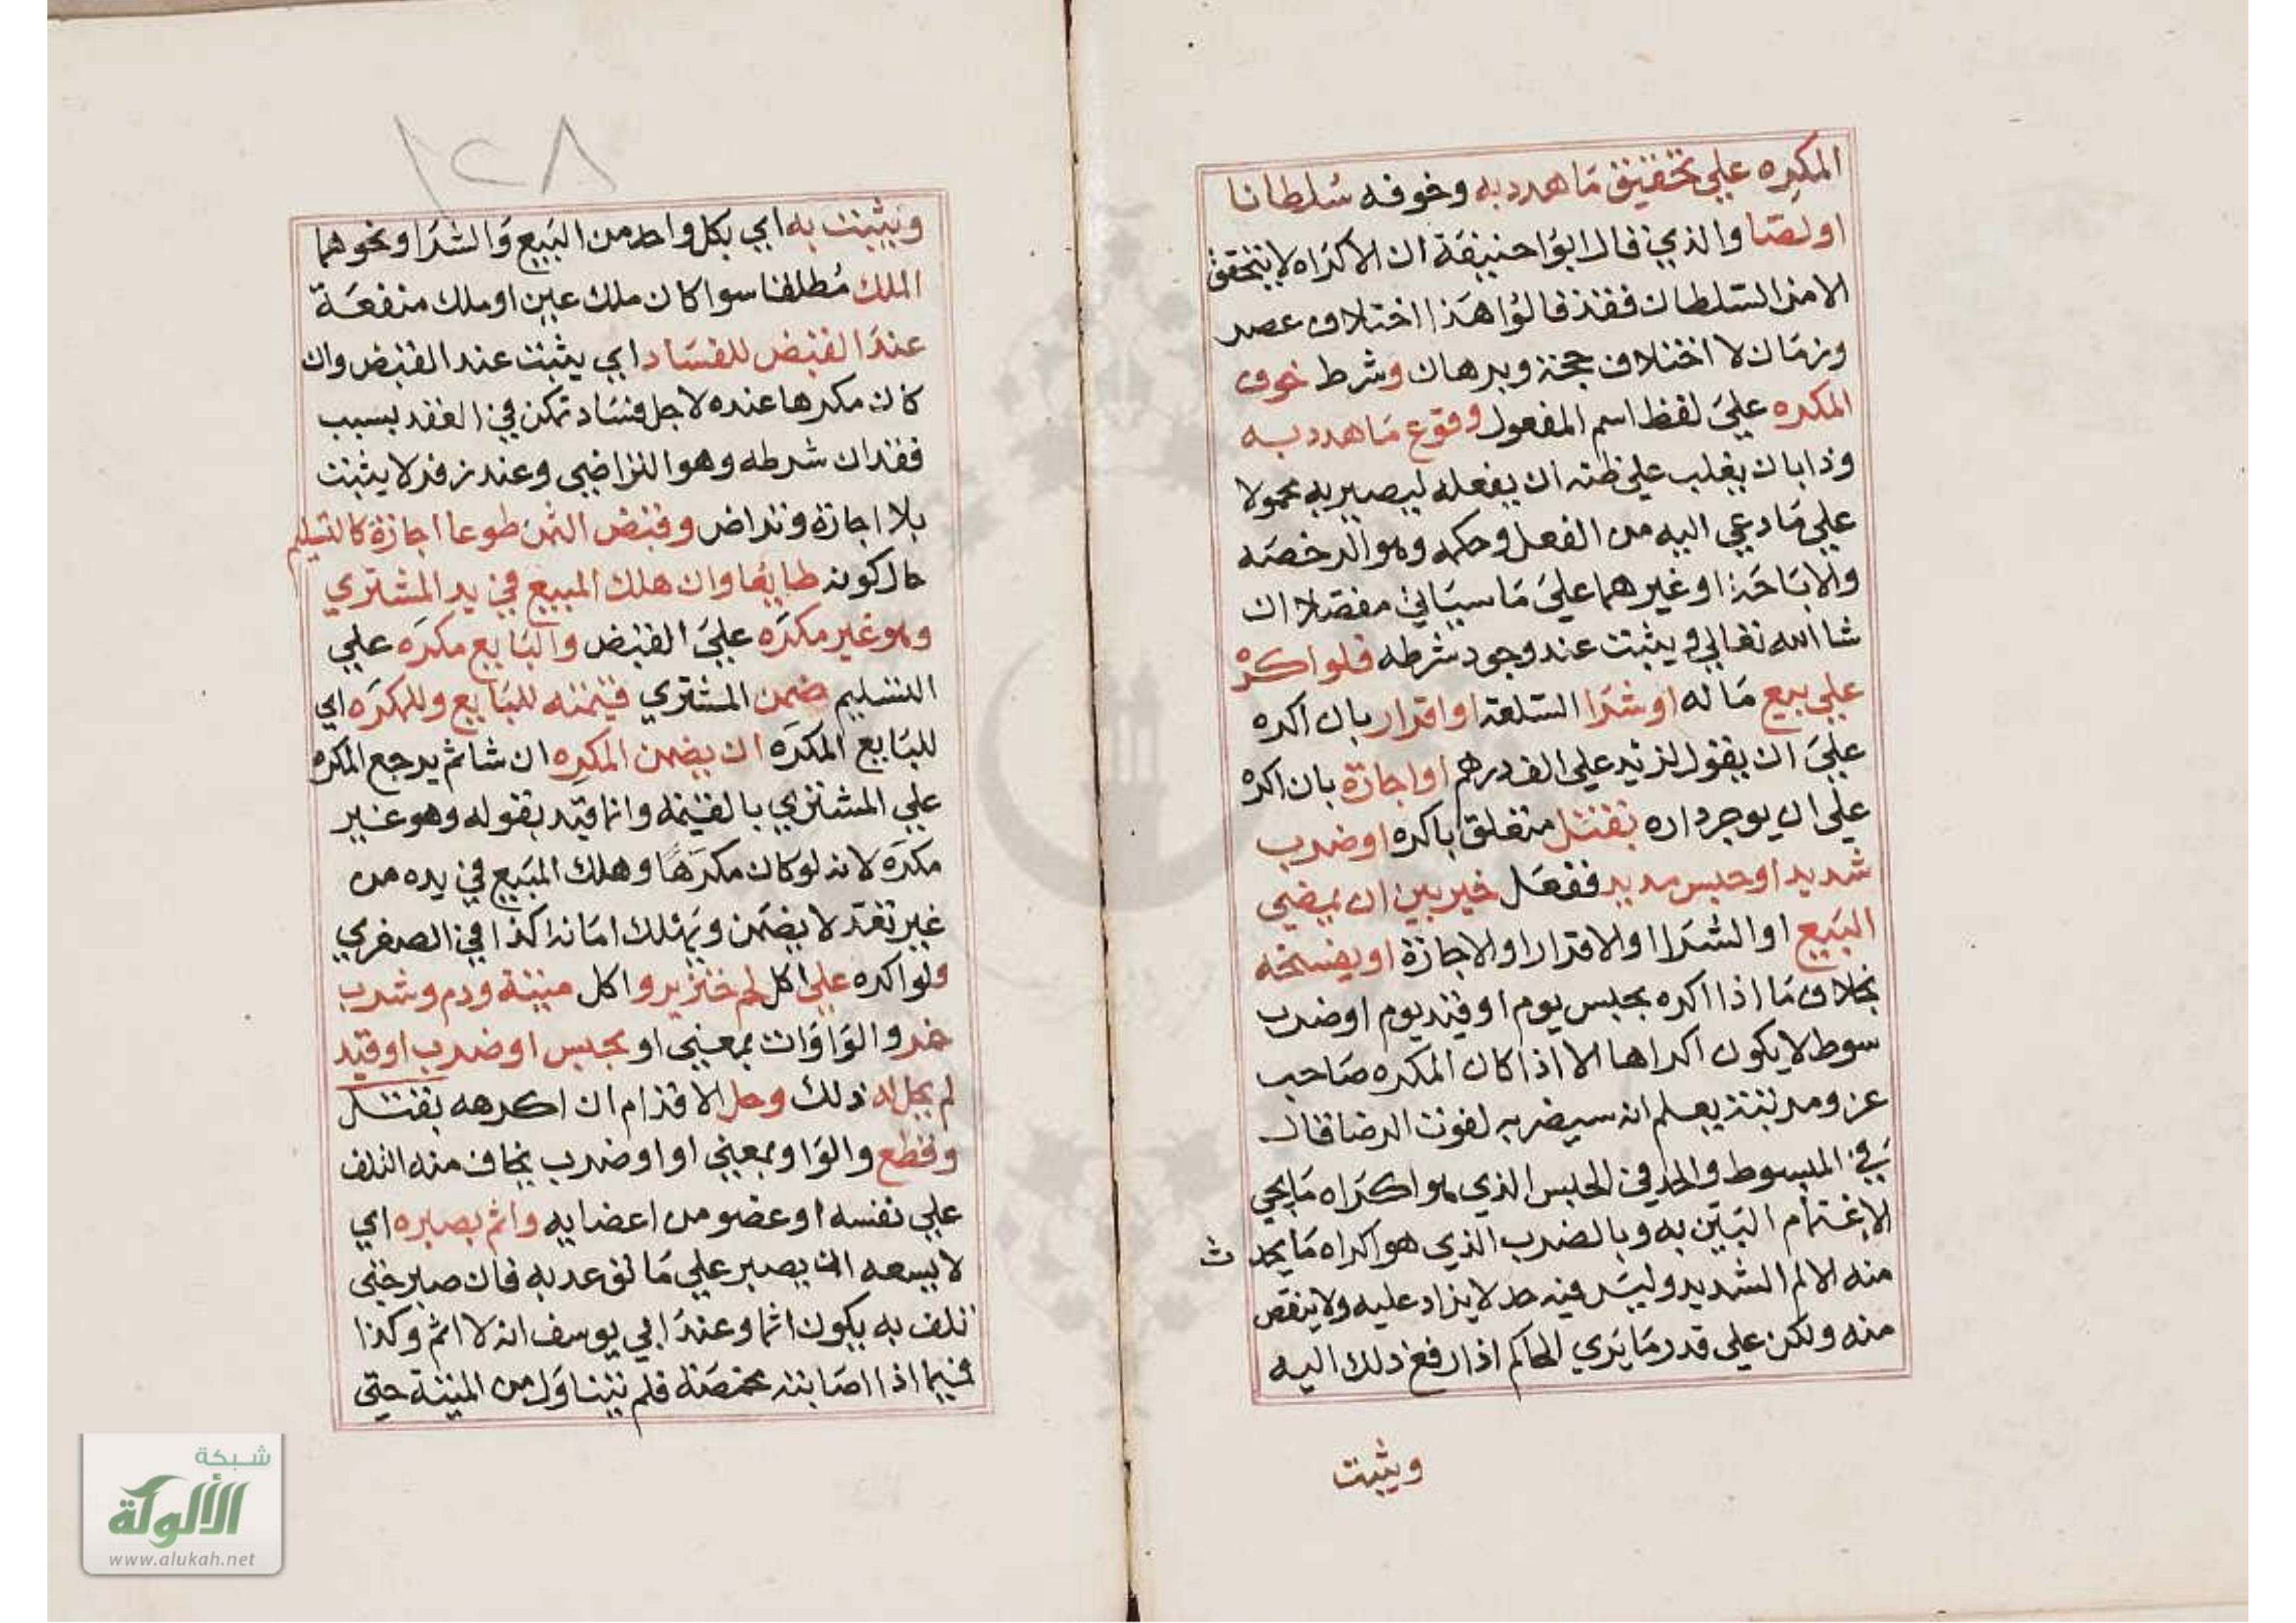 المكرِه علي تحقيق مَا هدد به وخوفه سُلطانا
او لصّا والذي قال ابوُا حنيفَة ان الاكرَاه لا يتحقق
الا من السّلطان فقد قالوُا هَذا اختلاف عصر
وزمَان لا اختلاف حجة وبرهان وشرط خوف
المكرَه عليَ لفظ اسم المفعول وقوع مَا هدد به
وذا بان يغلب علي ظنه ان يفعله ليصير به محمولا
علي مَا دعي اليه من الفعل وحكمه وهو الرخصَه
والابَاحَة او غيرهما عليَ مَا سيَاتي مفصّلا ان
شا الله تعالي ويثبت عند وجود شرطه فلو اكره
علي بيع مَا له او شرَا السّلعة او اقرار بان اكره
عليَ ان يقول لزيد علي الف درهم او اجارة بان اكره
علي ان يوجر داره بقتل متعلق باكره او ضرب
شديد او حبس مديد ففعَل خير بين ان يمضي
البَيع او الشرَا او الاقرار او الاجازة او يفسخه
بخلاف مَا اذا اكره بحبس يوم او قيد يوم او ضرب
سوط لا يكون اكراها الا اذا كان المكره صَاحب
عز ومرتبة يعلم انه سيضر به لفوت الرضا قال
في المبسوط والحد في الحبس الذي هو اكرَاه مَا يجي
الاغتمام البَيّن به وبالضرب الذي هو اكراه مَا يجد
ث
منه الالم الشديد وليسَ فيه حد لا يزاد عليه ولا ينقص
منه ولكن علي قدر مَا يَري الحاكم اذا رفع ذلك اليه
ويثبت
١٢٨
ويثبت به اي بكل واحد من البَيع وَالشرَا ونحوهما
الملك مُطلقا سوا كان ملك عين او ملك منفعَة
عندَ القبض للفسَاد اي يثبت عند القبض وان
كان مكرها عنده لاجل فسَاد تمكن في العقد بسبب
فقدان شرطه وهو التراضي وعند زفر لا يثبت
بلا اجازة وتراض وقبض الثمن طوعا اجازة كالتسليم
حال كونه طايعا وان هلك المبيع في يد المشتري
وهو غير مكرَه عليَ القبض والبَايع مكرَه علي
التسليم ضمن المشتري قيمته للبَايع وللمكرَه اي
للبَايع المكرَه ان يضمن المكرِه ان شا ثم يرجع المكره
علي المشتري بالقيمة وانما قيّد بقوله وهو غير
مكرَه لانه لو كان مكرَهًا وهلك المبَيع في يده من
غير تعَدّ لا يضمَن ويَهلك امَانة كذا في الصغري
ولو اكره علي اكل لحم خنزير واكل ميتة ودم وشرب
خمر والوَاوَات بمعني او بحبس او ضرب او قيد
لم يحل له ذلك وحل الاقدام ان اكرهه بقتل
وقطع والوَاو بمعني او او ضرب يخاف منه التلف
علي نفسه او عضو من اعضايه واثم بصبره اي
لا يسعه ان يصبر علي مَا توعد به فان صبر حتي
تلف به يكون اثما وعندَ ابي يوسف انه لا اثم وكذا
فيما اذا اصَابته مخمصَة فلم يتناوَل من الميتة حتي
شبكة
الألوكة
www.alukah.net